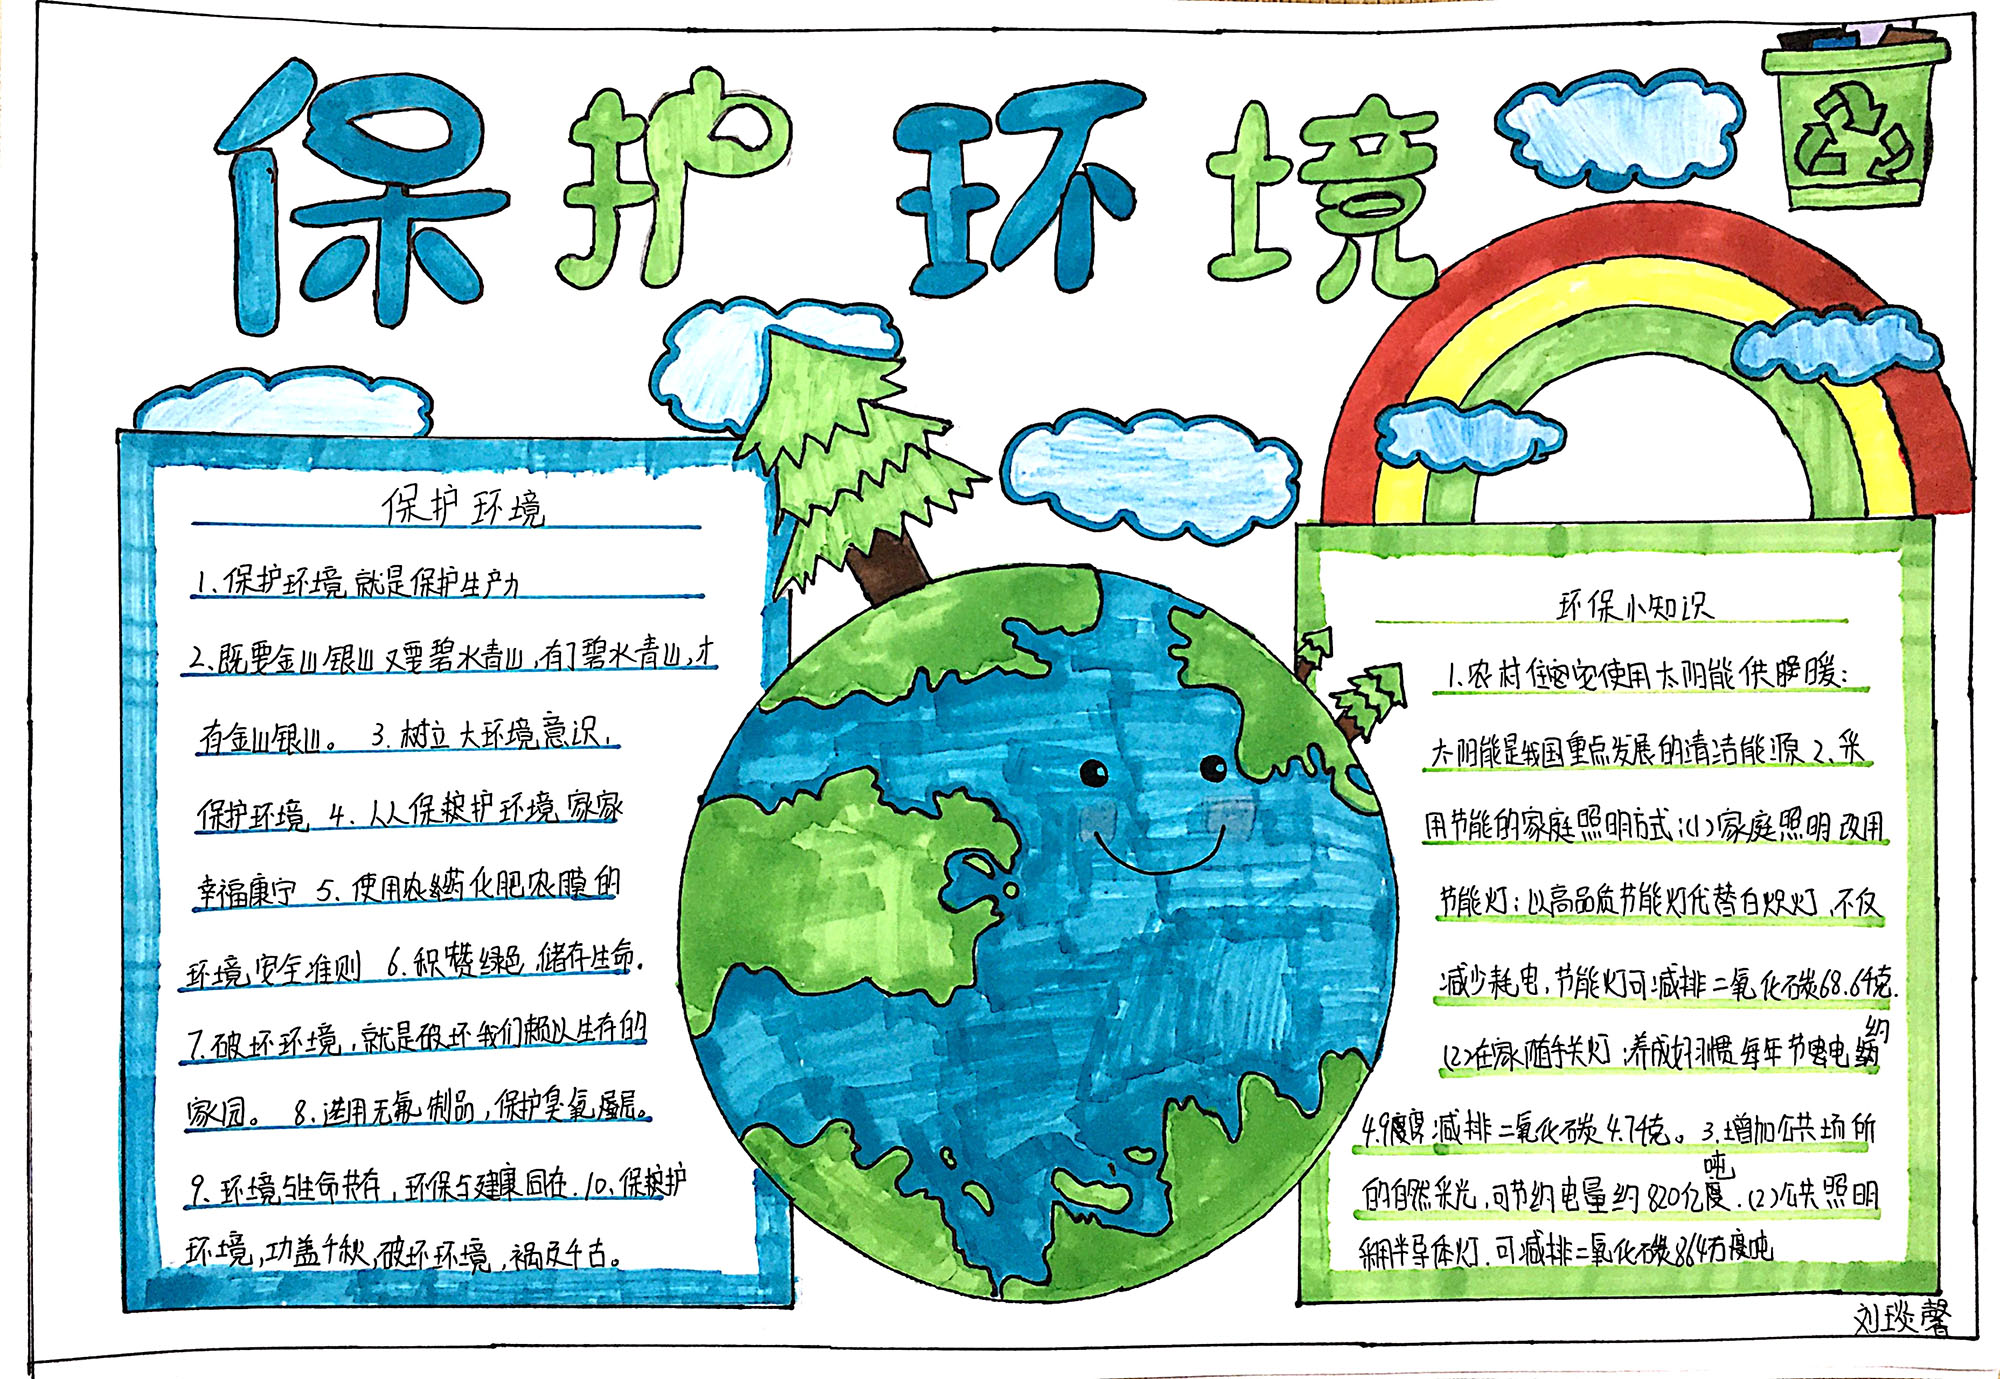 保护环境
保护环境
1、保护环境就是保护生产力
2、既要金山银山又要碧水青山,有了碧水青山,才
有金山银山。 3. 树立大环境意识,
保护环境 4、人人保护环境 家家
幸福康宁 5、使用农药化肥农膜的
环境安全准则 6.积赞绿色,储存生命.
7.破坏环境,就是破坏我们赖以生存的
家园。 8.选用无氟制品,保护臭氧层。
9、环境与生命共存,环保与健康同在.10、保护
环境,功盖千秋,破坏环境,祸及千古。
环保小知识
1.农村住宅使用太阳能供暖:
太阳能是我国重点发展的清洁能源 2、采
用节能的家庭照明方式:(1)家庭照明改用
节能灯:以高品质节能灯代替白炽灯,不仅
减少耗电,节能灯可减排二氧化碳68.6千克.
(2)在家随手关灯:养成好习惯每年节电约
4.9度减排二氧化碳4.7千克。3.增加公共场所
的自然采光,可节约电量约820亿吨.(2)公共照明
采用半导体灯.可减排二氧化碳864万吨
刘琰馨